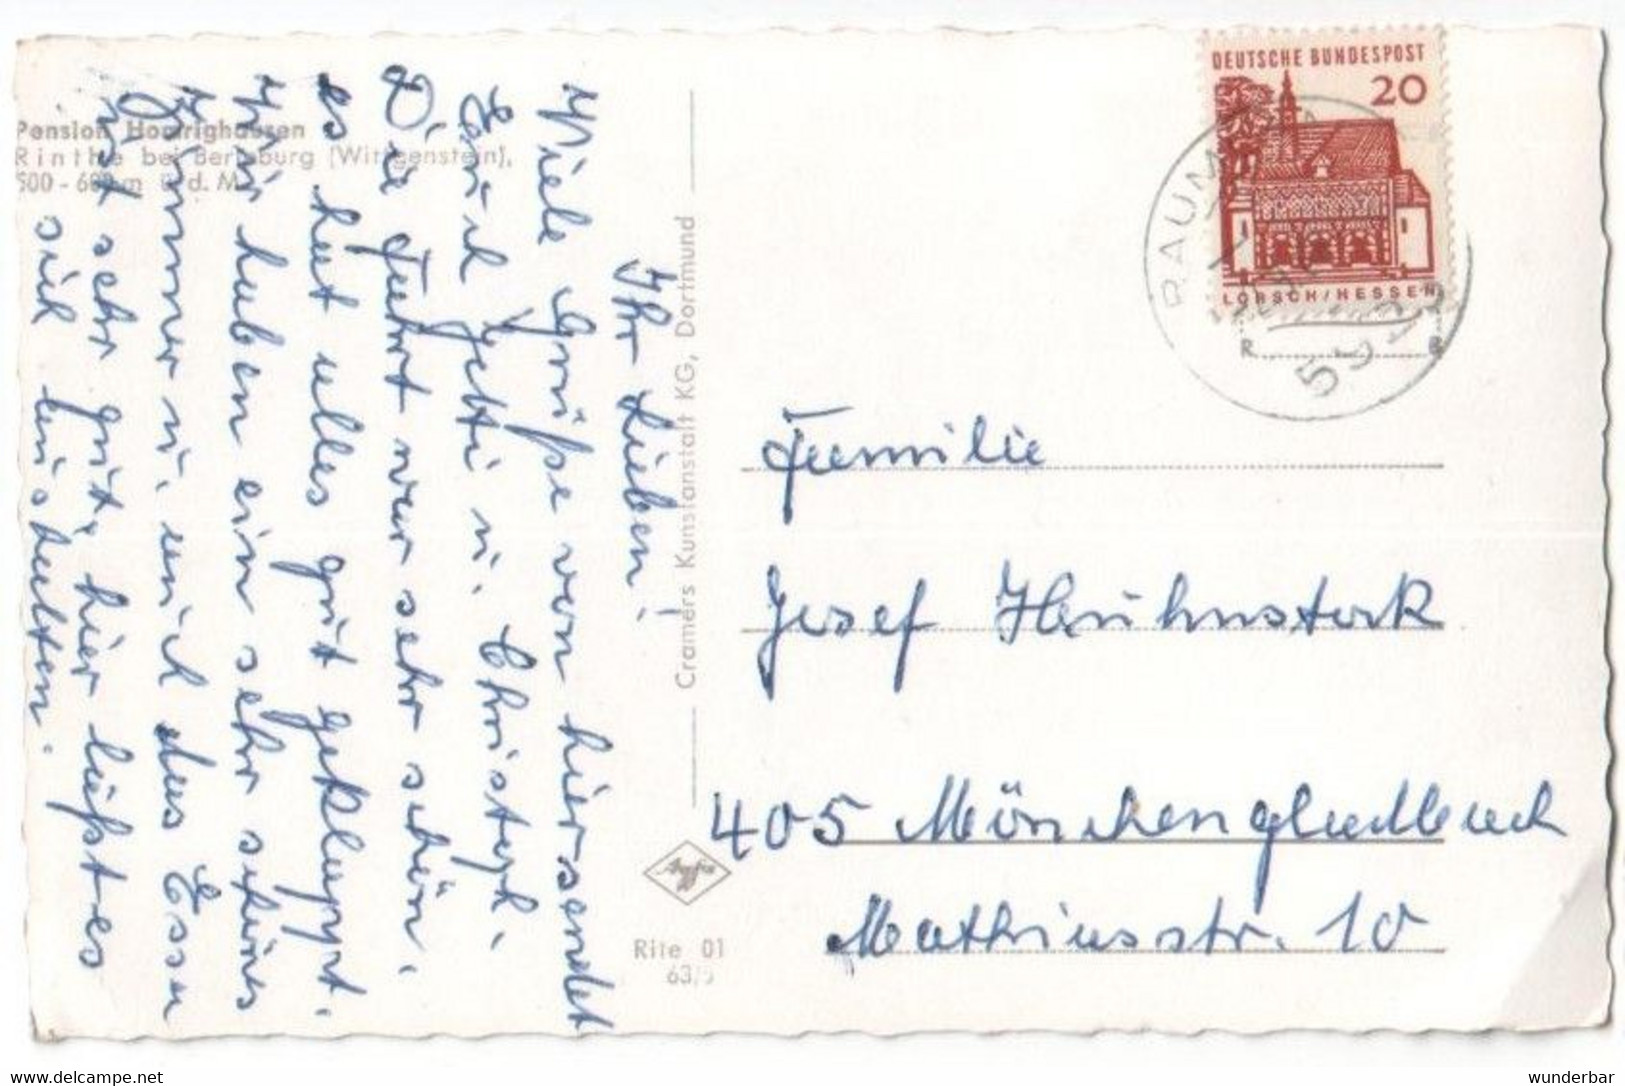 Pension Homrighausen
Rinthe bei Berleburg (Wittgenstein),
500 - 600 m ü. d. M.
Ihr Lieben!
Viele Grüße von hier sendet
Euch Hetti u. Christoph.
Die Fahrt war sehr schön,
es hat alles gut geklappt.
Wir haben ein sehr schönes
Zimmer u. auch das Essen
ist sehr gut, hier läßt es
sich aushalten.
Cramers Kunstanstalt KG, Dortmund
Agfa
Rite 01
63/5
DEUTSCHE BUNDESPOST
20
LORSCH/HESSEN
Familie
Josef Hauhnstock
405 Mönchengladbach
Mathiasstr. 10
www.delcampe.net
wunderbar